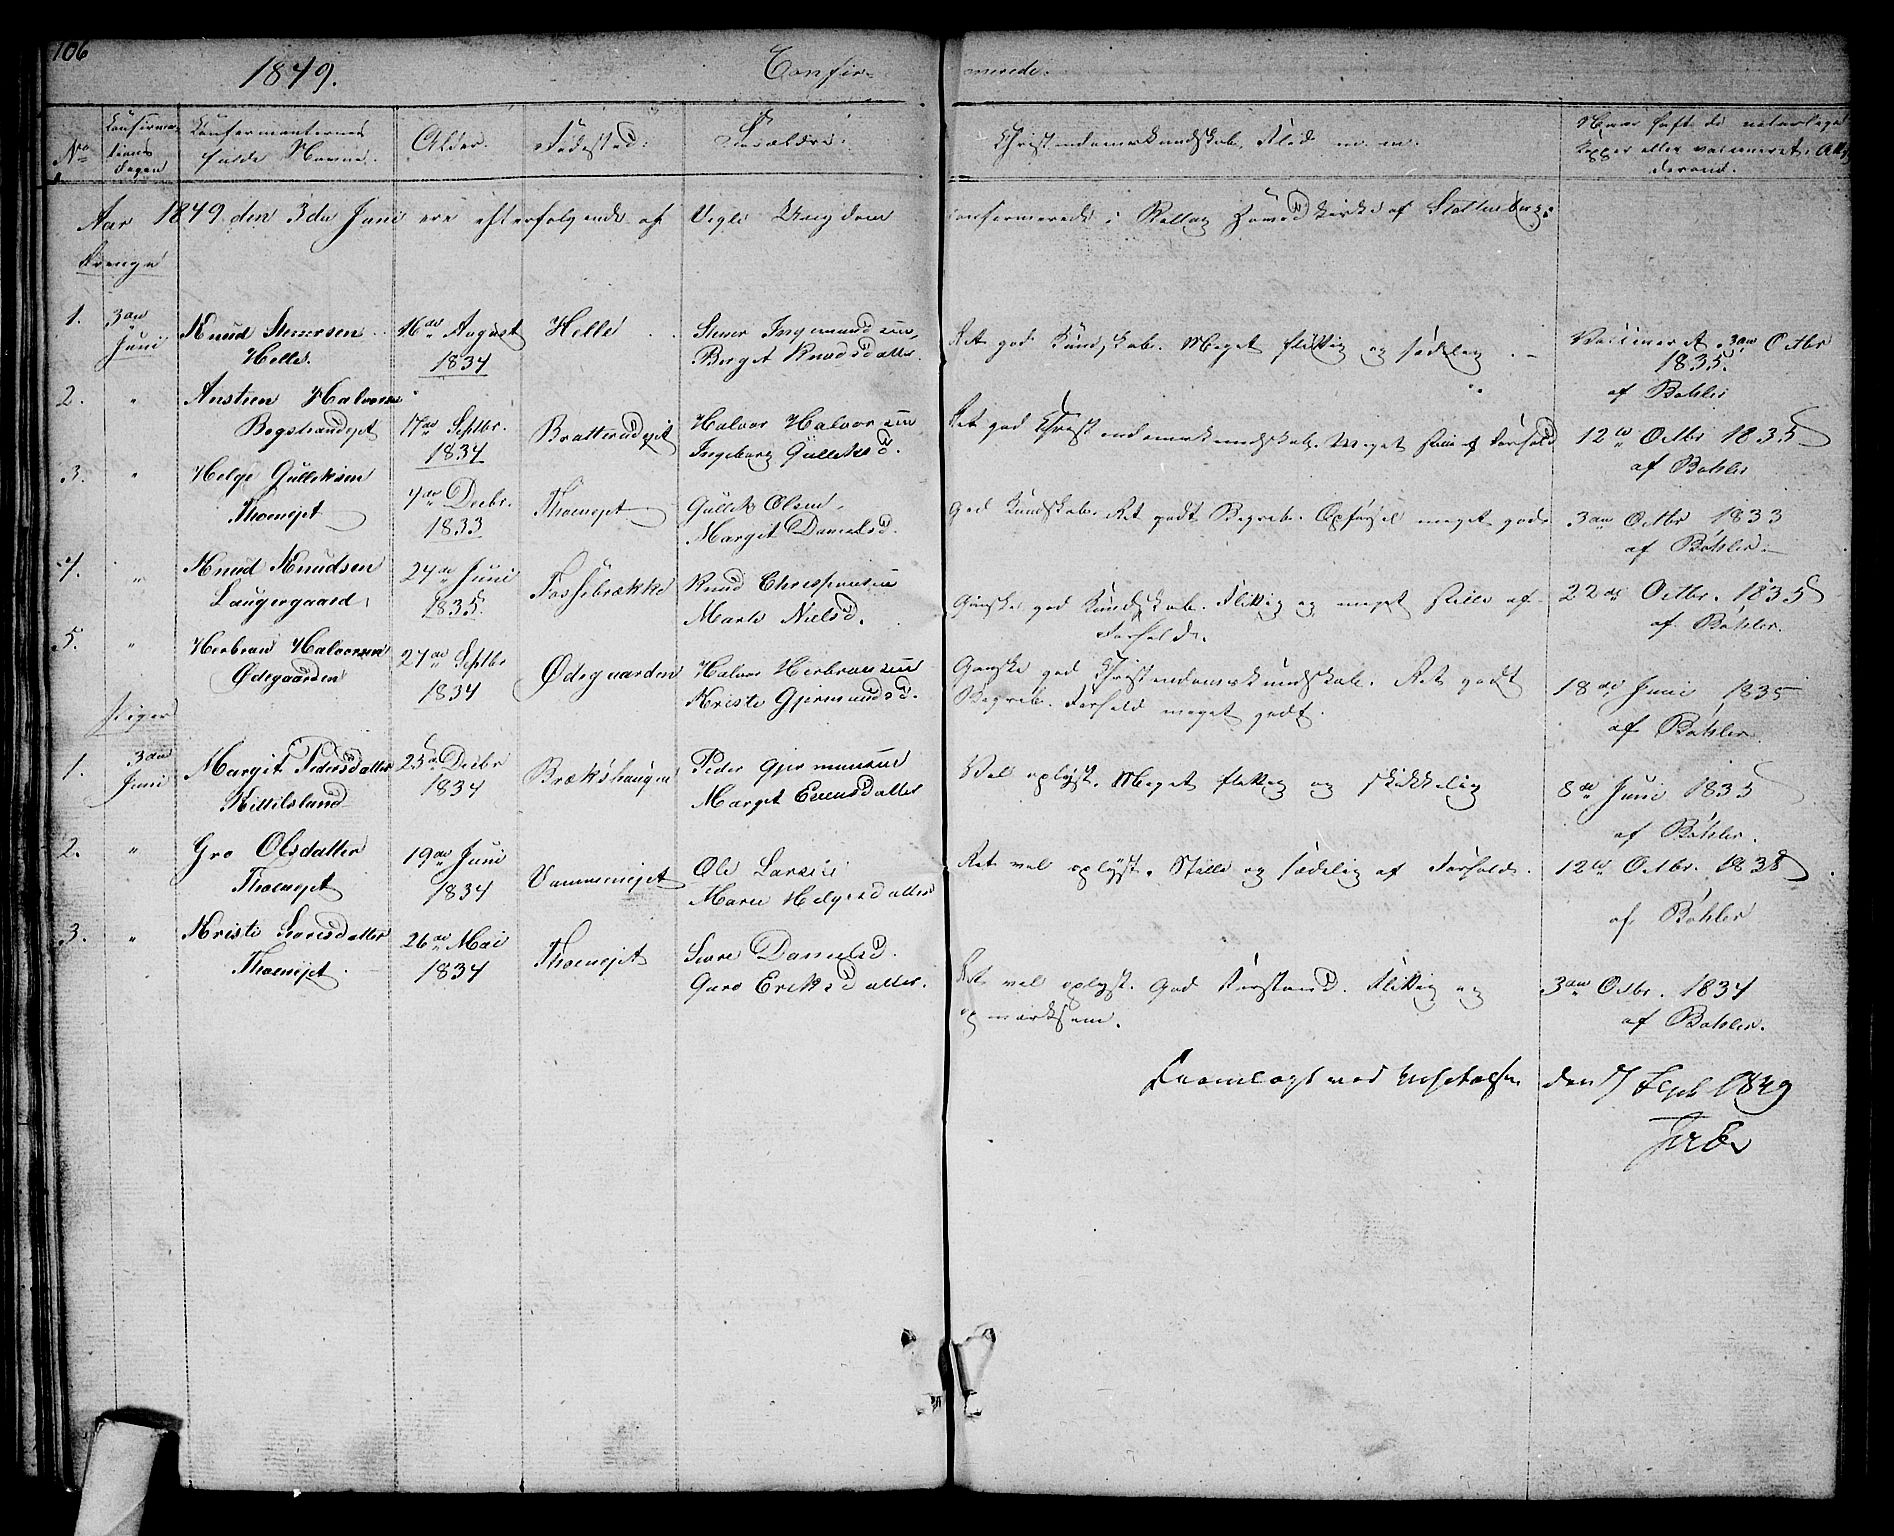 106
1849.
Confir-
merede.
No
Confirma-
tions
Dagen
Confirmanternes
fulde Navne.
Alder.
Fødested.
Forældre.
Christendomskundskab, Flid m. m.
Naar havt de naturlige
Kopper eller vaccineret. Atte-
derom.
Aar 1849 den 3die Juni ere efterfølgende af Vegli Ungdom confirmerede i Rollag Hovedkirke af
Drenge
1. 3die Juni Knud Steenersen Helle. 16de August 1834 Helle Steener Ingemundsen, Birget Knudsdatter. Ret god Kundskab. Meget flittig og sædelig. Vaccineret 3die Octbr 1835. af Bøhler
2. " Anstien Halvorsen Bogstrandejet 17de Septbr. 1834 Bratterudejet Halvor Halvorsen Ingeborg Gulliksd. Ret god Christendomskundskab. Meget stille af Forhold 12te Octbr 1835 af Bøhler
3. " Helge Gulliksen Thoenejet 4de Decbr. 1833 Thoenejet Gullik Olsen, Margit Danielsd. God Kundskab. Ret godt Begreb. Opførsel meget god. 3die Octbr 1833 af Bøhler.
4. " Knud Knudsen Laugergaard 24de Juni 1835. Fossebrække Knud Christensen Marte Nielsd. Ganske god Kundskab. Flittig og meget stille af Forhold. 22de Octbr. 1835 af Bøhler.
5. " Herbran Halvorsen Ødegaarden 27de Septbr 1834 Ødegaarden Halvor Herbransen Kristi Gjermundsd. Ganske god Christendomskundskab. Ret godt Begreb. Forhold meget godt. 18de Juni 1835 af Bøhler.
Piger
1. 3die Juni Margit Pedersdatter Kittilsland 25de Decbr 1834 Brækshaugen Peder Gjermunsen Margit Evensdatter Vel oplyst. Meget flittig og skikkelig 8de Juni 1835 af Bøhler.
2. " Gro Olsdatter Thoenejet 19de Juni 1834 Vammenejet Ole Larsen Marie Helgesdatter Ret vel oplyst. Stille og sædelig af Forhold. 12te Octbr. 1835 af Bøhler
3. " Kristi Sioresdatter Thoenejet. 26de Mai 1834 Thoenejet Siore Danielsd. Guro Eriksdatter. Ret vel oplyst. God Forstand. Flittig og opmærksom. 3die Octbr. 1834 af Bøhler.
Fremlagt ved Visitatsen den 17 Sept 1849